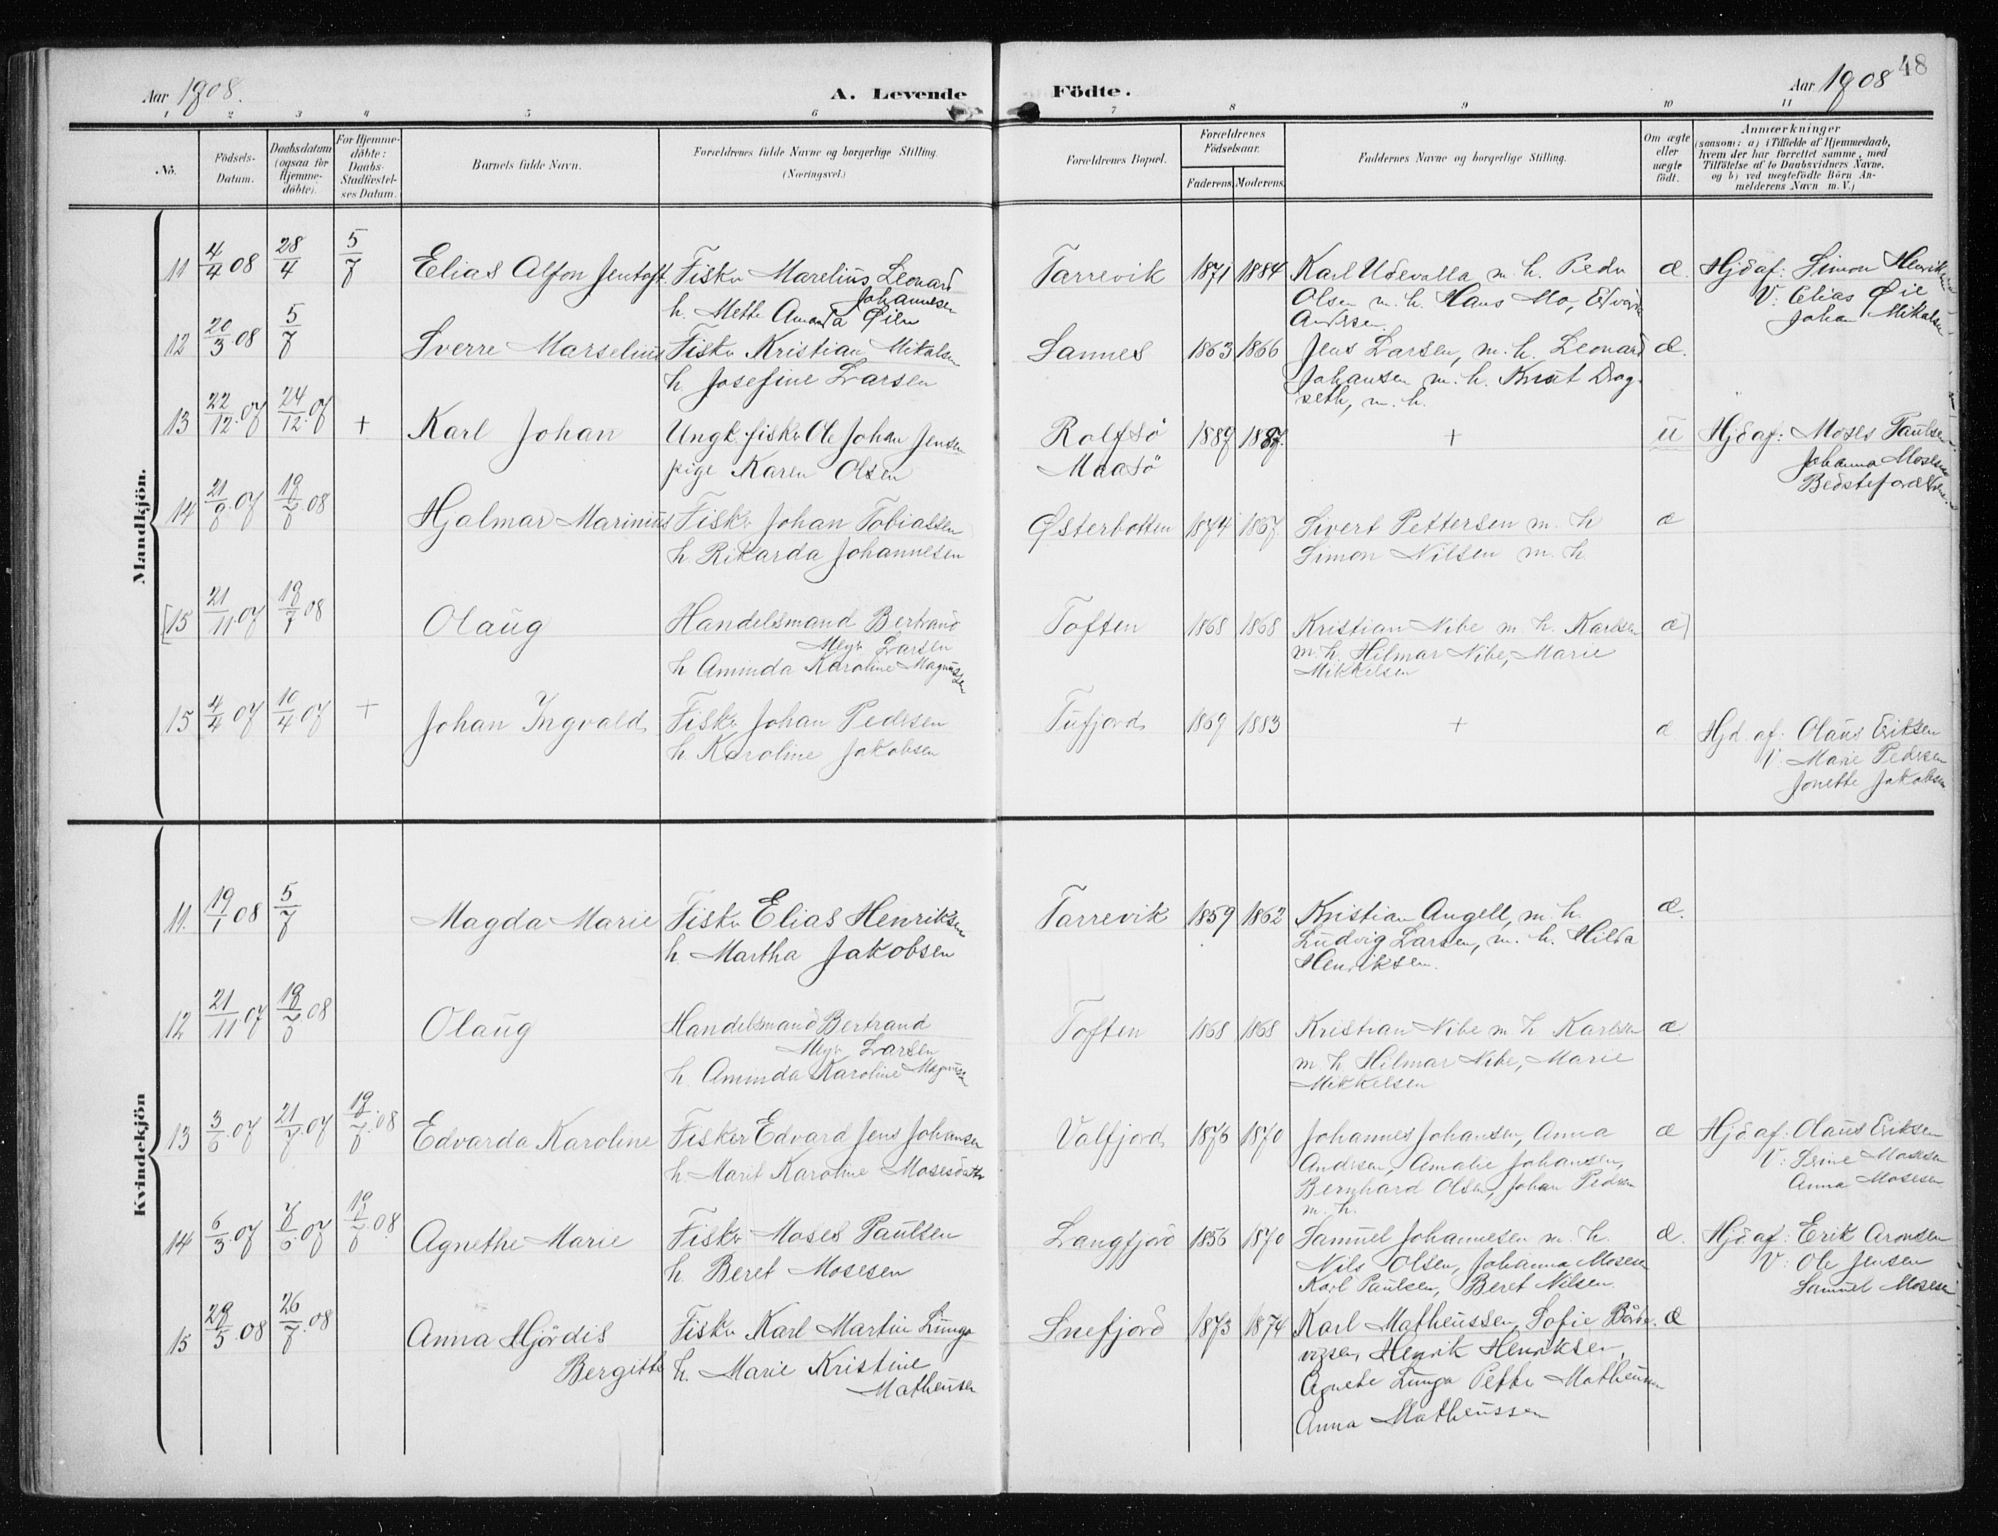 48
Aar 1908.
A. Levende Födte.
Aar 1908
1 2 3 4 5 6 7 8 9 10 11
No.
Födsels-Datum.
Daabsdatum (ogsaa för Hjemme-döbte).
For Hjemme-döbte: Daabs-Stadfæstel-ses Datum.
Barnets fulde Navn.
Forældrenes fulde Navne og borgerlige Stilling.
(Næringsvei.)
Forældrenes Bopæl.
Forældrenes Födselsaar.
Faderens. Moderens.
Faddernes Navne og borgerlige Stilling.
Om ægte eller uægte födt.
Anmærkninger
(saasom: a) i Tilfælde af Hjemmedaab,
hvem der har forrettet samme, med
Tilföielse af to Daabsvidners Navne,
og b) ved uægtefödte Börn An-
melderens Navn m. V.)
Mandkjön.
11 4/4 08 28/4 5/7 Elias Alfon Jentoft. Fisker Marelius Leonard Tarrevik 1871 1884 Karl Udevalla m. h. Peder æ. Hjd af: Simon Henriksen
Johannesen
h. Mette Amanda Öien Olsen m. h. Hans Mo, Edvard V: Elias Øie
Andersen. Johan Mikalsen
12 20/3 08 5/7 Sverre Marselius Fisker Kristian Mikalsen Sannes 1863 1866 Jens Larsen, m. h. Leonard æ.
h. Josefine Larsen Johansen m. h. Knut Drag-
seth, m. h.
13 22/12 07 24/12 07 + Karl Johan Ungk. fisker Ole Johan Jensen Rolfsö 1887 1887 + u Hjd af: Moses Paulsen
pige Karen Olsen Maasö Johanna Mosesen
Bedsteforældrene.
14 21/8 07 19/7 08 Hjalmar Marinius Fisker Johan Tobiassen Østerbotten 1874 1867 Sivert Pettersen m. h æ
h. Rikarda Johannesen Simon Nilsen m. h
[15 21/11 07 19/7 08 Olaug Handelsmand Bertrand Toften 1868 1868 Kristian Nibe m. h. Karlsen æ]
Meyer Larsen m. h. Hilmar Nibe, Marie
h Aminda Karoline Magnussen Mikkelsen
15 4/4 07 10/4 07 + Johan Ingvald Fisker Johan Pedersen Tufjord 1869 1883 + æ Hjd. af: Olaus Eriksen
h Karoline Jakobsen V: Marie Pedersen
Jonette Jakobsen
Kvindekjön
11. 19/1 08 5/7 Magda Marie Fisker Elias Henriksen Tarrevik 1859 1862 Kristian Angell, m. h. æ.
h Martha Jakobsen Ludvig Larsen, m. h. Hilda
Henriksen.
12 21/11 07 19/7 08 Olaug Handelsmand Bertrand Toften 1868 1868 Kristian Nibe m. h Karlsen æ
Meyer Larsen m h Hilmar Nibe, Marie
h. Aminda Karoline Magnussen Mikkelsen
13 3/6 07 21/7 07 19/7 08 Edvarda Karoline Fisker Edvard Jens Johansen Valfjord 1876 1870 Johannes Johansen, Anna æ Hjd af: Olaus Eriksen
h Marit Karoline Mosesdatter Andersen, Amalie Johansen, V: Serine Mosesen
Bernhard Olsen, Johan Pedersen Anna Mosesen
m. h.
14 6/3 07 19/7 08 Agnethe Marie Fisker Moses Paulsen Langfjord 1856 1870 Samuel Johannesen m. h. æ. Hjd af: Erik Aronsen
h. Beret Mosesen Nils Olsen, Johanna Mosesen V: Ole Jensen
Karl Paulsen, Beret Nilsen Samuel Mosesen
15 29/5 08 26/7 08 Anna Hjördis Fisker Karl Martin Lunga Snefjord 1873 1874 Karl Matheussen, Sofie æ
Bergitte h. Marie Kristine Henrik Henriksen,
Matheusen Agnete Lunga Petter Matheussen
Anna Matheussen